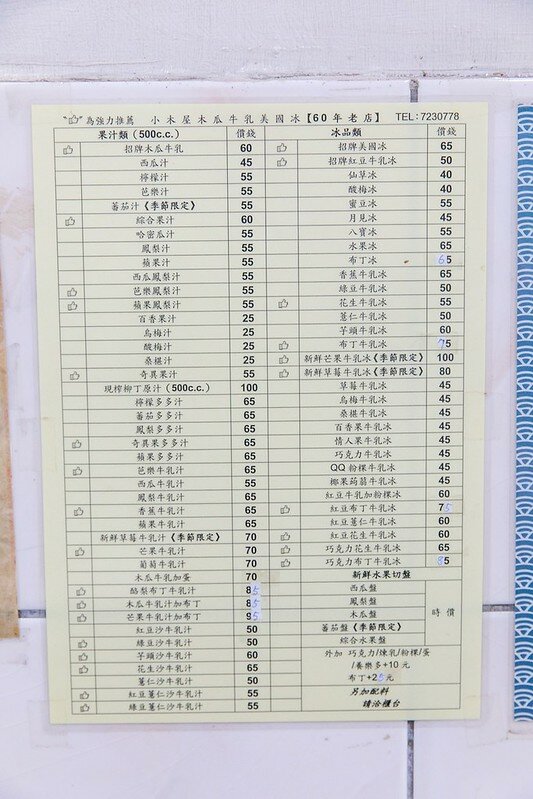 "👍"為強力推薦 小木屋木瓜牛乳美國冰【60年老店】 TEL:7230778
果汁類(500c.c.) 價錢
招牌木瓜牛乳 60
西瓜汁 45
檸檬汁 55
芭樂汁 55
蕃茄汁《季節限定》 55
綜合果汁 60
哈密瓜汁 55
鳳梨汁 55
蘋果汁 55
西瓜鳳梨汁 55
芭樂鳳梨汁 55
蘋果鳳梨汁 55
百香果汁 25
烏梅汁 25
酸梅汁 25
桑椹汁 25
奇異果汁 55
現榨柳丁原汁(500c.c.) 100
檸檬多多汁 65
蕃茄多多汁 65
鳳梨多多汁 65
奇異果多多汁 65
蘋果多多汁 65
芭樂牛乳汁 65
西瓜牛乳汁 55
鳳梨牛乳汁 65
香蕉牛乳汁 65
蘋果牛乳汁 65
新鮮草莓牛乳汁《季節限定》 70
芒果牛乳汁 70
葡萄牛乳汁 70
木瓜牛乳加蛋 70
酪梨布丁牛乳汁 85
木瓜牛乳汁加布丁 85
芒果牛乳汁加布丁 95
紅豆沙牛乳汁 50
綠豆沙牛乳汁 50
芋頭沙牛乳汁 60
花生沙牛乳汁 65
薏仁沙牛乳汁 50
紅豆薏仁沙牛乳汁 55
綠豆薏仁沙牛乳汁 55
冰品類 價錢
招牌美國冰 65
招牌紅豆牛乳冰 50
仙草冰 40
酸梅冰 40
蜜豆冰 55
月見冰 45
八寶冰 55
水果冰 65
布丁冰 65
香蕉牛乳冰 65
綠豆牛乳冰 50
花生牛乳冰 55
薏仁牛乳冰 50
芋頭牛乳冰 60
布丁牛乳冰 75
新鮮芒果牛乳冰《季節限定》 100
新鮮草莓牛乳冰《季節限定》 80
草莓牛乳冰 45
烏梅牛乳冰 45
桑椹牛乳冰 45
百香果牛乳冰 45
情人果牛乳冰 45
巧克力牛乳冰 45
QQ粉粿牛乳冰 45
椰果蒟蒻牛乳冰 45
紅豆牛乳加粉粿冰 60
紅豆布丁牛乳冰 75
紅豆薏仁牛乳冰 60
紅豆花生牛乳冰 60
巧克力花生牛乳冰 65
巧克力布丁牛乳冰 85
新鮮水果切盤
西瓜盤
鳳梨盤
木瓜盤
蕃茄盤《季節限定》
綜合水果盤
時價
外加 巧克力/煉乳/粉粿/蛋
/養樂多+10元
布丁+25元
另加配料
請洽櫃台